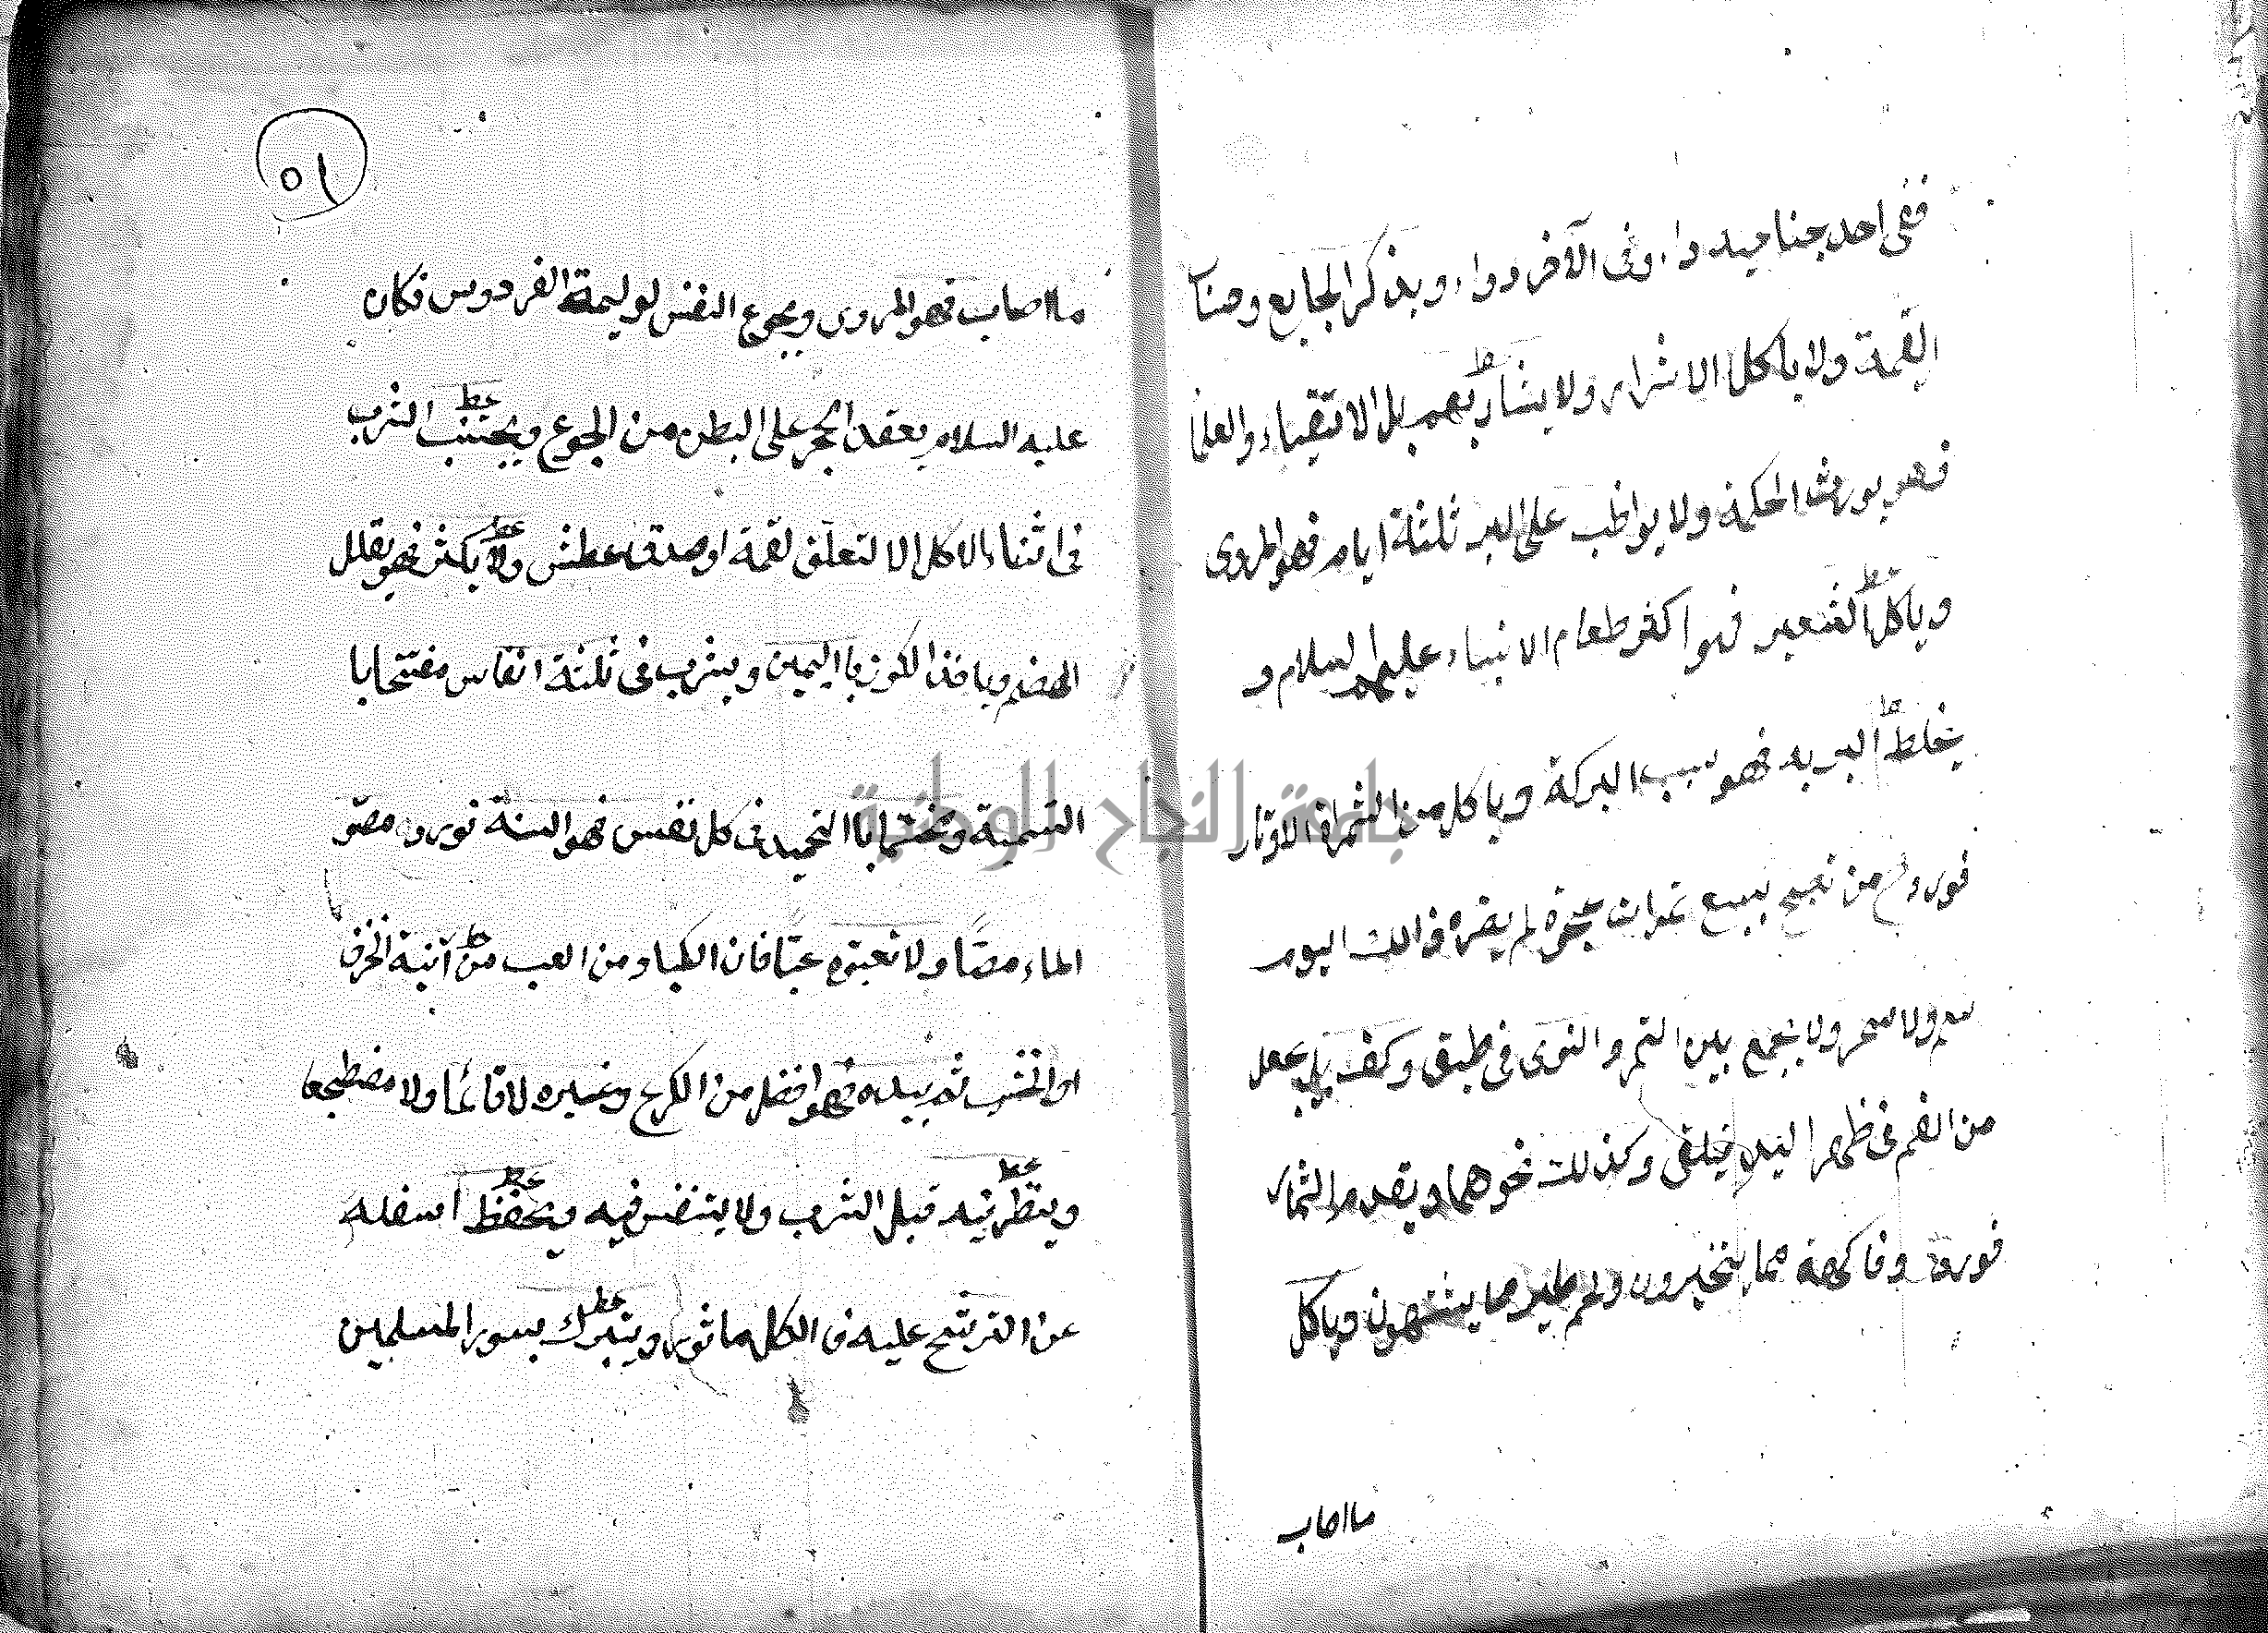 ففى احد جناحيه داء وفى الآخر دواء ويذكر الجايع وهناك
القمة ولا ياكل الاشرار ولا يشاربهم بل الاتقياء والعلما
فهو يورث الحكمة ولا يواظب على البر ثلثة ايام فهو المروى
وياكل الشعير فهو اكثر طعام الانبياء عليهم السلام و
يخلط البر به فهو سبب البركة وياكل من الثمرات الاوتار
فورد من تصبح بسبع تمرات عجوة لم يضره ذلك اليوم
سم ولا سحر ولا يجمع بين التمر والنوى فى طبق وكف بل يجعل
من الفم فى ظهر اليد فيلقى وكذلك نحوهما ويقدم الثمار
فورد وفاكهة مما يتخيرون ولحم طير مما يشتهون وياكل
ما اصاب
٥١
ما اصاب فهو المروى ويجوع النفس لوليمة الفردوس فكان
عليه السلام يعقد الحجر على البطن من الجوع ويجتنب الشرب
فى اثناء الاكل الا لتعلق لقمة او صدق عطش ولا يكثر فهو يقلل
الهضم وياخذ الكوز باليمين ويشرب فى ثلثة انفاس مفتتحا با
التسمية ومختتما با التحميد فى كل نفس فهو السنة فورد مصّو
الماء مصّا ولا تعبّوه عبّا فان الكباد من العب من آنية الخزف
او الخشب ثم بيده فهو افضل من الكرع وغيره لا قائما ولا مضطجعا
وينظر فيه قبل الشرب ولا يتنفس فيه ويحفظ اسفله
عن الترشح عليه فى الكل ماثور ويتبرك بسور المسلمين
جامعة النجاح الوطنية